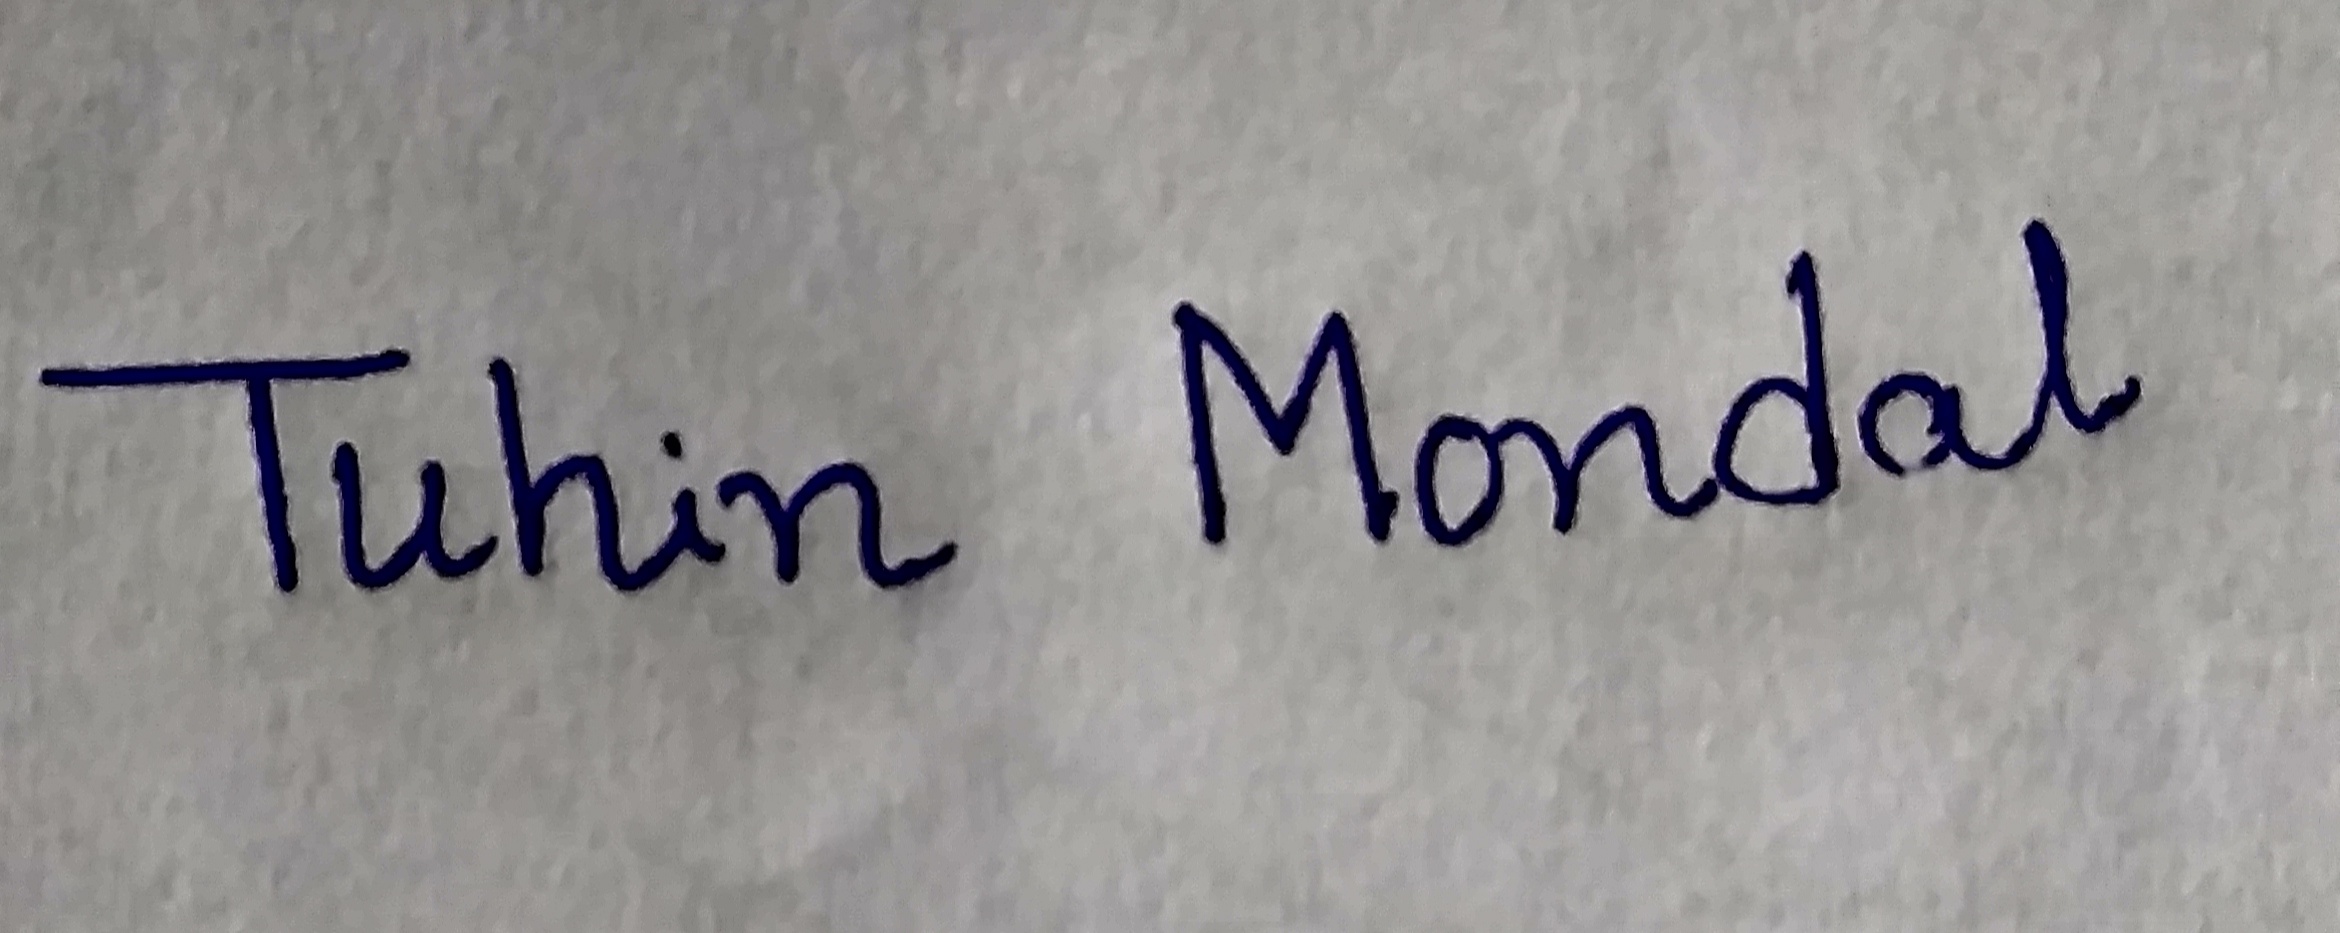 Tuhin Mondal